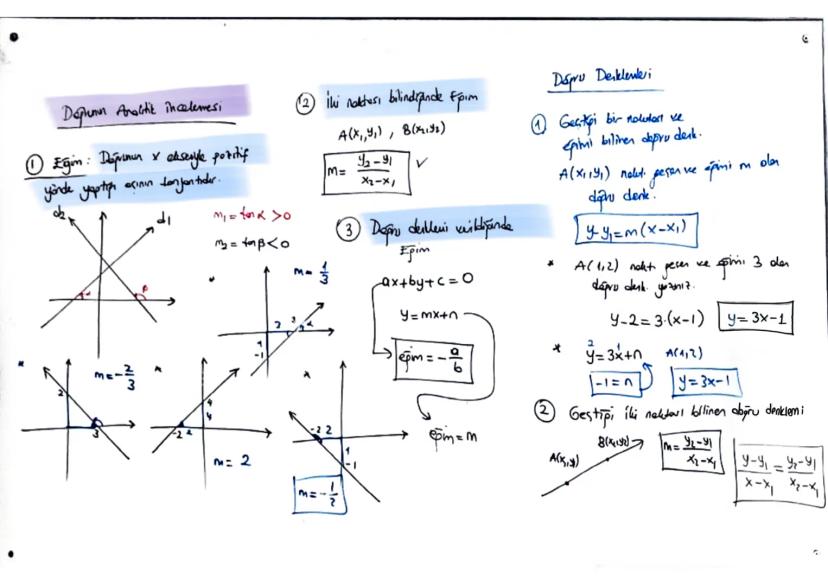 Doğrunun Analitik İncelemesi
① Eğim: Doğrunun x ekseniyle pozitif
yönde yaptığı açının tanjantıdır.
d2
d1
α
β
m₁ = tan α > 0
m₂ = tan β < 0
* m = 1/3
3
3
α
1
-1
* m = -2/3
2
3
*
4
4
-2
2
m = 2
*
-2
2
1
-1
m = -1/2
② İki noktası bilindiğinde Eğim
A(x₁,y₁) , B(x₂,y₂)
m = y₂-y₁ / x₂-x₁ ✓
③ Doğru denklemi verildiğinde
Eğim
ax+by+c=0
y=mx+n
eğim = -a/b
eğim = m
Doğru Denklemleri
① Geçtiği bir noktası ve
eğimi bilinen doğru denk.
A(x₁,y₁) nokt. geçen ve eğimi m olan
doğru denk.
y-y₁=m(x-x₁)
* A(1,2) nokt. geçen ve eğimi 3 olan
doğru denk. yazınız.
y-2=3.(x-1) y=3x-1
2 1
* y=3x+n A(1,2)
-1=n y=3x-1
② Geçtiği iki noktası bilinen doğru denklemi
A(x₁,y₁)
B(x₂,y₂)
m = y₂-y₁ / x₂-x₁
y-y₁ / x-x₁ = y₂-y₁ / x₂-x₁